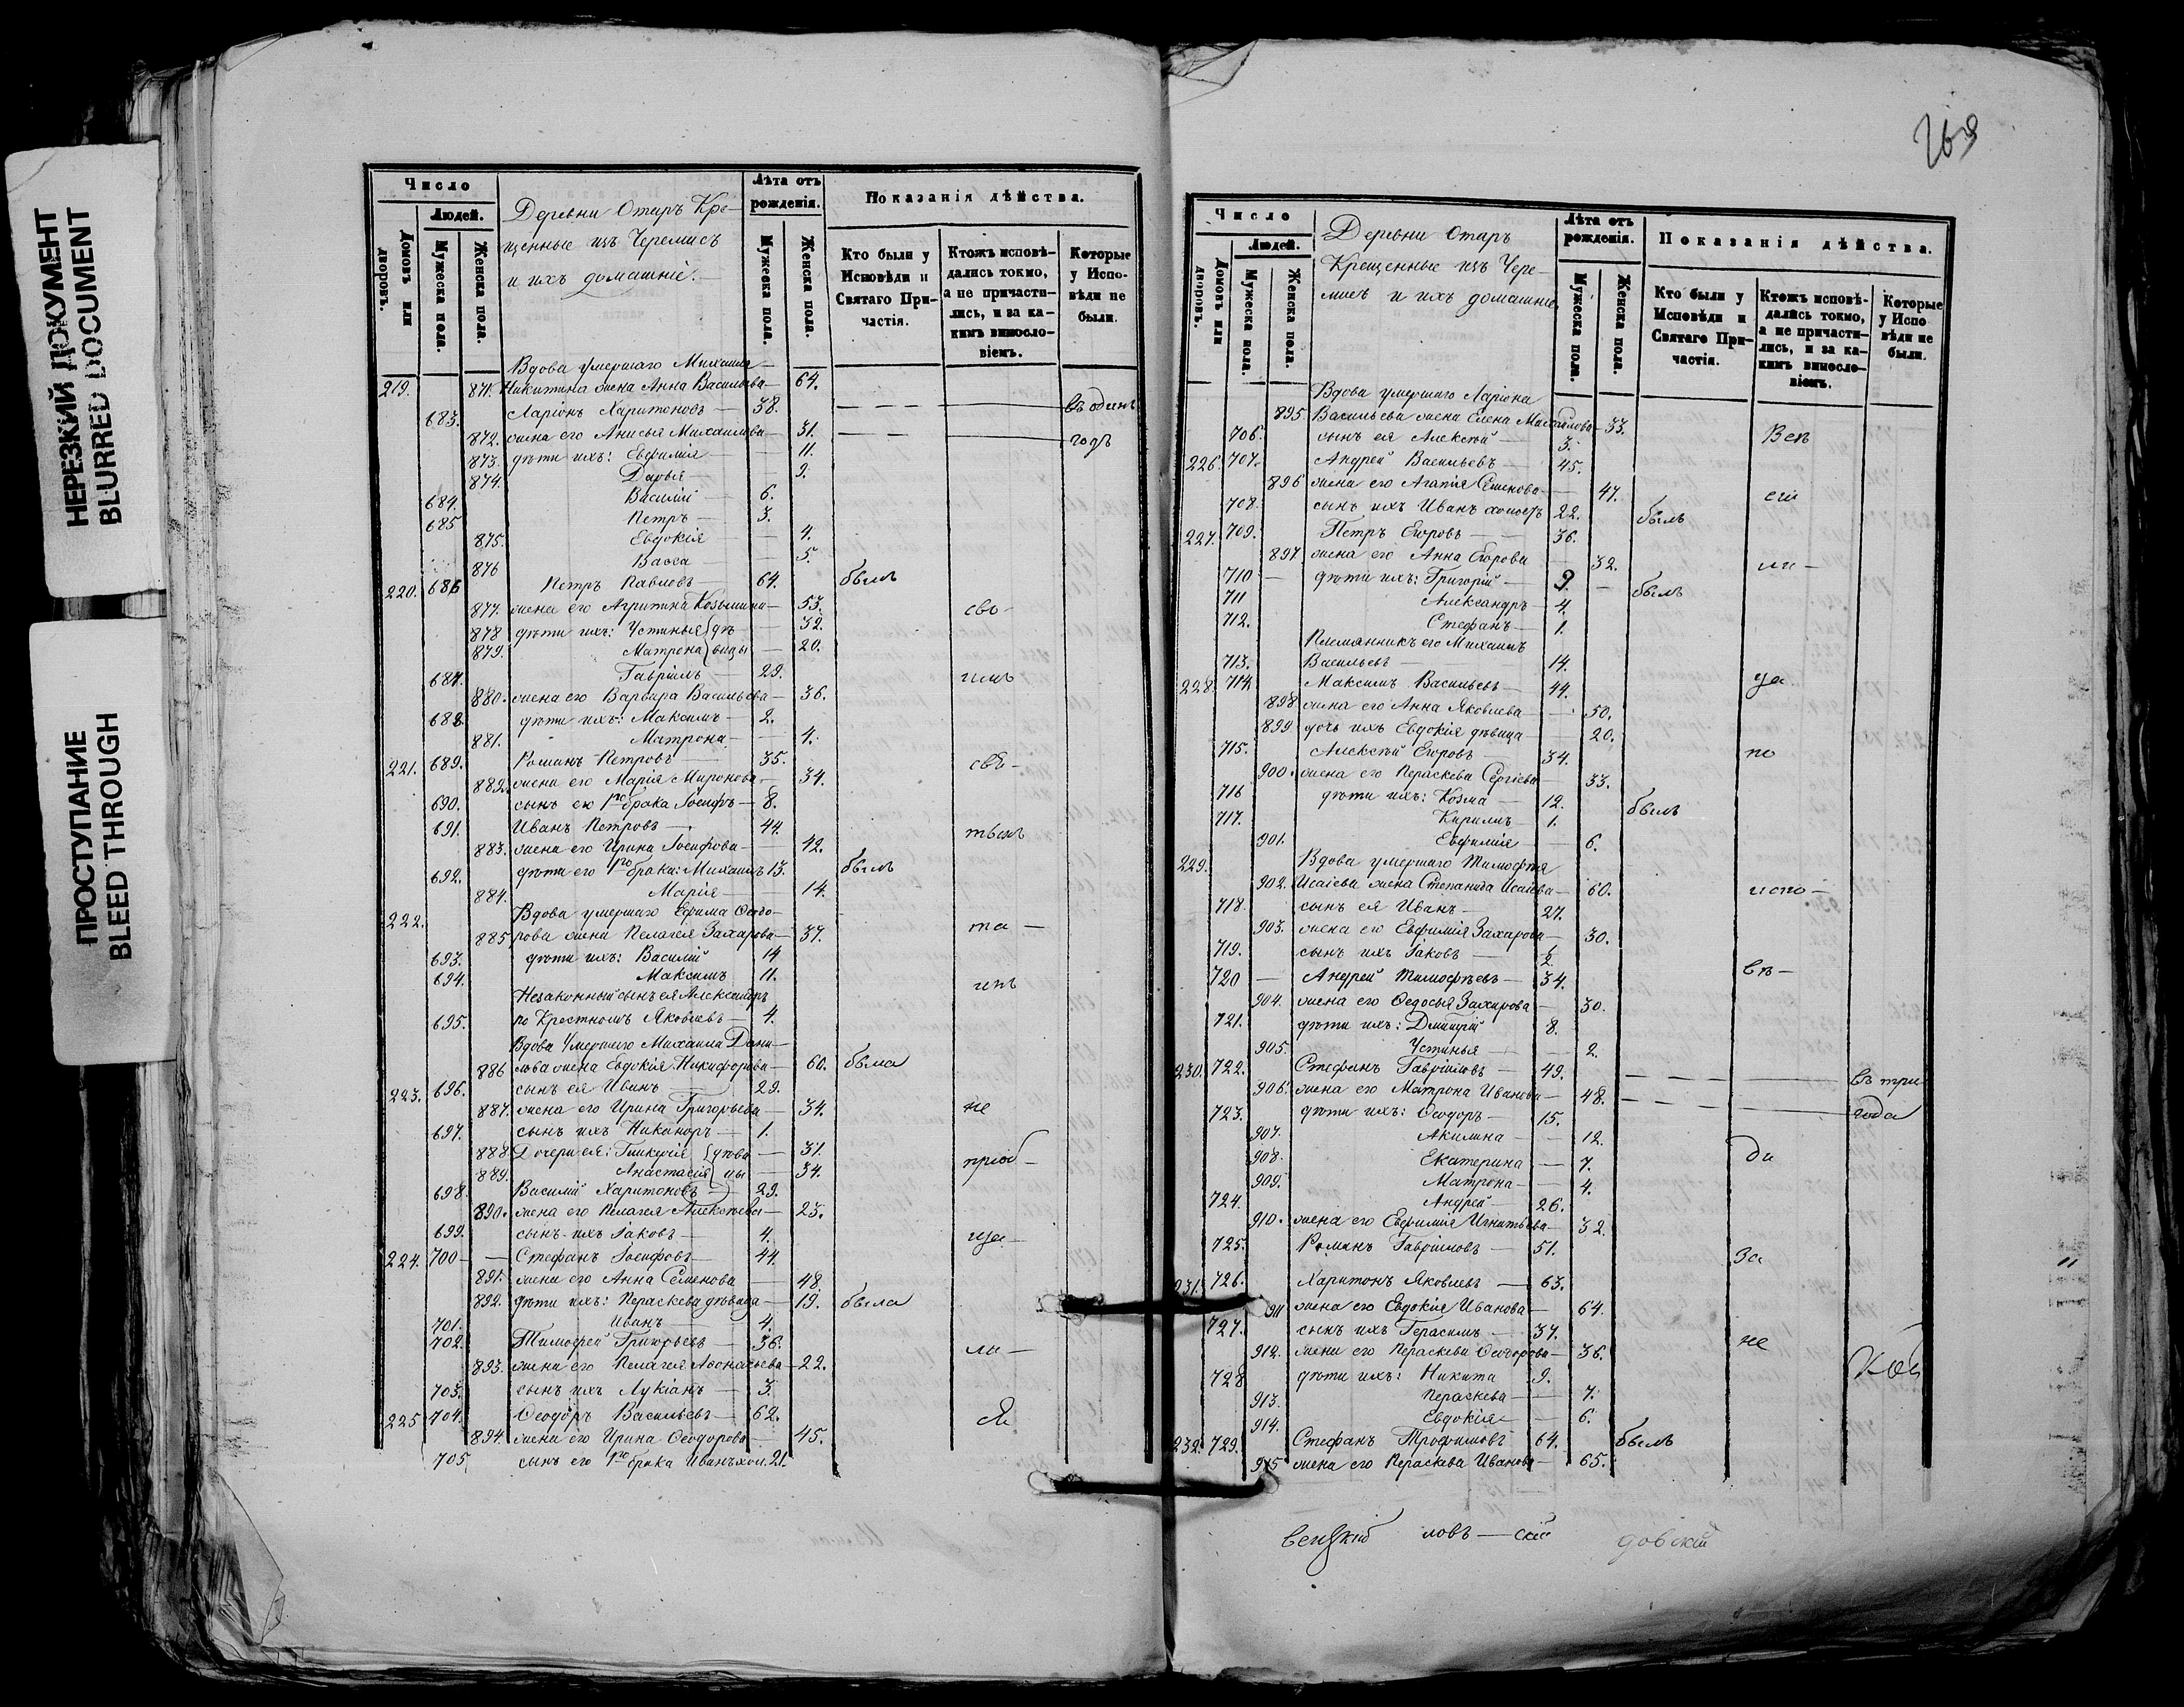 НЕРЕЗКИЙ ДОКУМЕНТ
BLURRED DOCUMENT
ПРОСТУПАНИЕ
BLEED THROUGH
Число
Людей.
Домовъ или дворовъ.
Мужеска пола.
Женска пола.
Деревни Отаръ Кре-
щенные изъ Черемисъ
и ихъ домашніе.
Лѣта отъ рожденія.
Мужеска пола.
Женска пола.
Показанія дѣйства.
Кто были у Исповѣди и Святаго При-частія.
Ктожъ исповѣ-дались токмо, а не причасти-лись, и за ка-кимъ винносло-віемъ.
Которые у Испо-вѣди не были.
Вдова умершаго Михаила
219. 871. Никитина жена Анна Васильева — 64.
683. Ларіонъ Харитоновъ — 38. въ одинъ
872. жена его Анисья Михаилова — 31. годъ
873. дѣти ихъ: Евфимія — 11.
874. Дарья 9.
684. Василій — 6.
685 Петръ — 3.
875. Евдокія — 4.
876 Васса — 5.
220. 686 Петръ Павловъ — 64. былъ
877. жена его Агрипина Козьмина — 53.
878 дѣти ихъ: Устинья } дѣ- 32.
879. Матрона } вицы — 20.
687. Гавріилъ — 29.
880. жена его Варвара Васильева — 36.
688. дѣти ихъ: Максимъ — 2.
881. Матрона — 4.
221. 689. Романъ Петровъ — 35.
882. жена его Марія Миронова — 34.
690. сынъ ея 1го брака Іосифъ — 8.
691. Иванъ Петровъ — 44.
883. жена его Ирина Іосифова — 42.
692. дѣти его 1го брака: Михаилъ 13. былъ
884. Марія — 14.
222. Вдова умершаго Ефима Ѳедо-
885 рова жена Пелагея Захарова — 37. та —
693. дѣти ихъ: Василій 14
694. Максимъ 11.
Незаконный сынъ ея Александръ
695. по Крестномъ Яковлевъ — 4.
Вдова умершаго Михаила Дани-
886 лова жена Евдокія Никифорова — 60. была
223. 696. сынъ ея Иванъ — 29.
887. жена его Ирина Григорьева — 34. не
697. сынъ ихъ Никаноръ — 1.
888 Дочери ея: Гликерія { дѣви- — 31.
889. Анастасія { цы — 34. пріоб —
698. Василій Харитоновъ — 29.
890. жена его Пелагея Алексѣева — 23.
699. сынъ ихъ Іаковъ — 4. ща —
224. 700 — Стефанъ Іосифовъ 44.
891. жена его Анна Семенова 48.
892. дѣти ихъ: Параскева дѣвица — 19. была
701. Иванъ — 4.
702. Тимофей Григорьевъ — 36. ли —
893. жена его Пелагея Аѳонасьева — 22.
703. сынъ ихъ Лукіанъ — 3.
225 704. Ѳеодоръ Васильевъ — 62.
894. жена его Ирина Ѳеодорова — 45.
705 сынъ его 1го брака Иванъ хол. 21.
269
Число
Людей.
Домовъ или дворовъ.
Мужеска пола.
Женска пола.
Деревни Отаръ
Крещенные изъ Чере-
мисъ и ихъ домашніе
Лѣта отъ рожденія.
Мужеска пола.
Женска пола.
Показанія дѣйства.
Кто были у Исповѣди и Святаго При-частія.
Ктожъ исповѣ-дались токмо, а не причасти-лись, и за ка-кимъ винносло-віемъ.
Которые у Испо-вѣди не были.
Вдова умершаго Ларіона
895 Васильева жена Елена Михайлова — 33.
706. сынъ ея Алексѣй — 3. Всѣ
226. 707. Андрей Васильевъ — 45.
896 жена его Агапія Семенова — 47. сіи
708. сынъ ихъ Иванъ холостъ 22. былъ
227. 709. Петръ Егоровъ — 36.
897. жена его Анна Егорова 32.
710 — дѣти ихъ: Григорій — 9. — былъ
711 Александръ — 4.
712. Стефанъ — 1.
Племянникъ его Михаилъ
713. Васильевъ 14.
228. 714 Максимъ Васильевъ — 44.
898 жена его Анна Яковлева — 50.
899 дочь ихъ Евдокія дѣвица — 20.
715. Алексѣй Егоровъ — 34. по
900. жена его Параскева Сергіева — 33.
716 дѣти ихъ: Козма — 12. былъ
717. Кирилъ 1.
901. Евфимія — 6.
229. Вдова умершаго Тимофея
902. Исаіева жена Степанида Исаіева — 60. испо —
718. сынъ ея Иванъ — 27.
903. жена его Евфимія Захарова — 30.
719. сынъ ихъ Іаковъ —
720 — Андрей Тимофѣевъ — 34. вѣ —
904. жена его Ѳедосья Захарова — 30.
721. дѣти ихъ: Дмитрій 8.
905. Устинья — 2.
230. 722. Стефанъ Гавріиловъ — 49. въ три
906. жена его Матрона Иванова — 48. года
723. дѣти ихъ: Ѳеодоръ — 15.
907. Акилина — 12.
908. Екатерина — 7.
909. Матрона — 4.
724. Андрей — 26.
910. жена его Евфимія Игнатьева — 32.
725. Романъ Гавріиловъ — 51.
231. 726. Харитонъ Яковлевъ — 63.
911 жена его Евдокія Иванова — 64.
727. сынъ ихъ Герасимъ — 37.
912. жена его Параскева Ѳеодорова — 36. не
728 дѣти ихъ: Никита 9.
913. Параскева — 7.
914. Евдокія — 6.
232. 729. Стефанъ Трофимовъ 64. былъ
915 жена его Параскева Иванова — 65.
ловъ — скій довскій